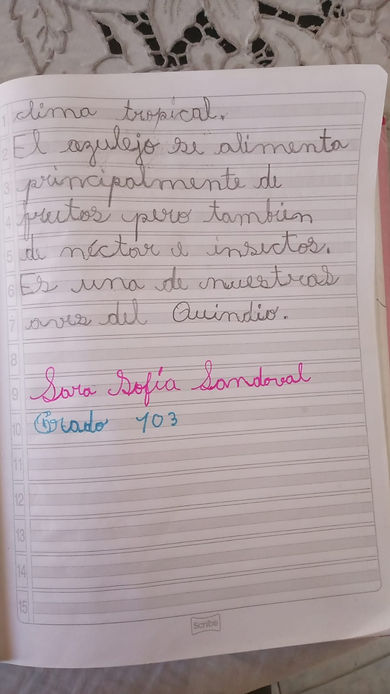 clima tropical.
El azulejo se alimenta
principalmente de
frutos pero también
de néctar e insectos.
Es una de nuestras
aves del Quindio.
Sara Sofía Sandoval
Grado 103
1
2
3
4
5
6
7
8
9
10
11
12
13
14
15
Scribe